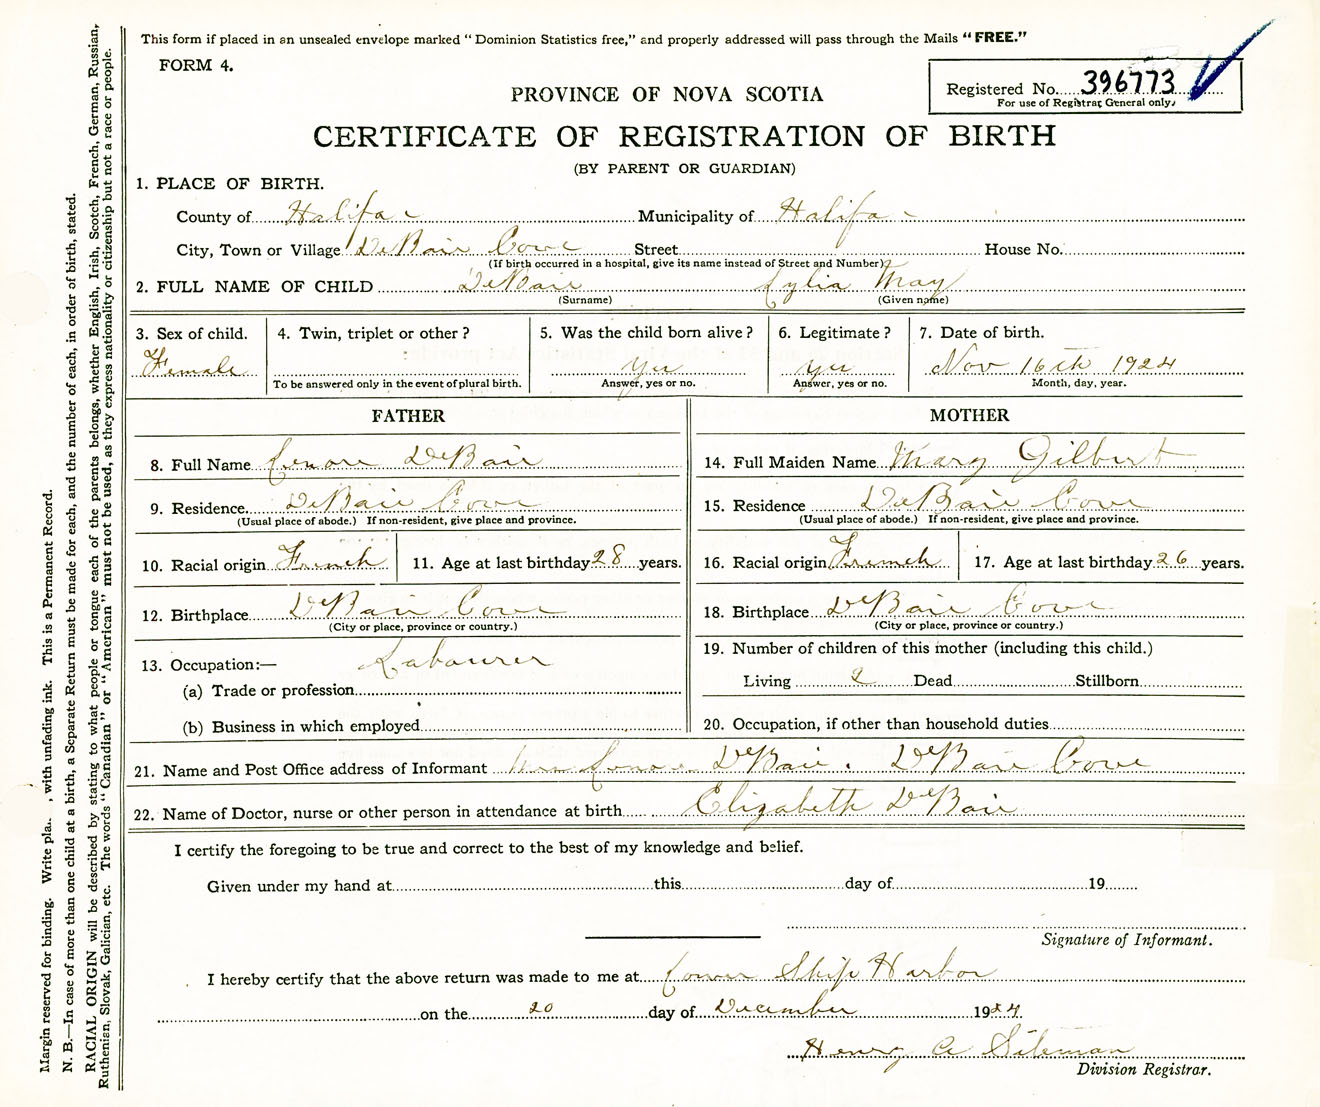 This form if placed in an unsealed envelope marked "Dominion Statistics free," and properly addressed will pass through the Mails "FREE."
FORM 4.
Registered No. 396773
For use of Registrar General only.
PROVINCE OF NOVA SCOTIA
CERTIFICATE OF REGISTRATION OF BIRTH
(BY PARENT OR GUARDIAN)
1. PLACE OF BIRTH.
County of Halifax Municipality of Halifax
City, Town or Village DeBaie Cove Street House No.
(If birth occurred in a hospital, give its name instead of Street and Number)
2. FULL NAME OF CHILD DeBaie Lylia May
(Surname) (Given name)
3. Sex of child. 4. Twin, triplet or other? 5. Was the child born alive? 6. Legitimate? 7. Date of birth.
Female yes yes Nov 16th 1924
To be answered only in the event of plural birth. Answer, yes or no. Answer, yes or no. Month, day, year.
FATHER MOTHER
8. Full Name Lenore DeBaie 14. Full Maiden Name Mary Gilbert
9. Residence. DeBaie Cove 15. Residence DeBaie Cove
(Usual place of abode.) If non-resident, give place and province. (Usual place of abode.) If non-resident, give place and province.
10. Racial origin French 11. Age at last birthday 28 years. 16. Racial origin French 17. Age at last birthday 26 years.
12. Birthplace DeBaie Cove 18. Birthplace DeBaie Cove
(City or place, province or country.) (City or place, province or country.)
13. Occupation:— Labourer 19. Number of children of this mother (including this child.)
(a) Trade or profession Living 2 Dead Stillborn
(b) Business in which employed 20. Occupation, if other than household duties
21. Name and Post Office address of Informant Mrs Lenore DeBaie. DeBaie Cove
22. Name of Doctor, nurse or other person in attendance at birth Elizabeth DeBaie
I certify the foregoing to be true and correct to the best of my knowledge and belief.
Given under my hand at this day of 19
Signature of Informant.
I hereby certify that the above return was made to me at Lower Ship Harbor
on the 20 day of December 1924
Henry A Siteman
Division Registrar.
Margin reserved for binding. Write pla.. , with unfading ink. This is a Permanent Record.
N. B.—In case of more than one child at a birth, a Separate Return must be made for each, and the number of each, in order of birth, stated.
RACIAL ORIGIN will be described by stating to what people or tongue each of the parents belongs, whether English, Irish, Scotch, French, German, Russian,
Ruthenian, Slovak, Galician, etc. The words "Canadian" or "American" must not be used, as they express nationality or citizenship but not a race or people.